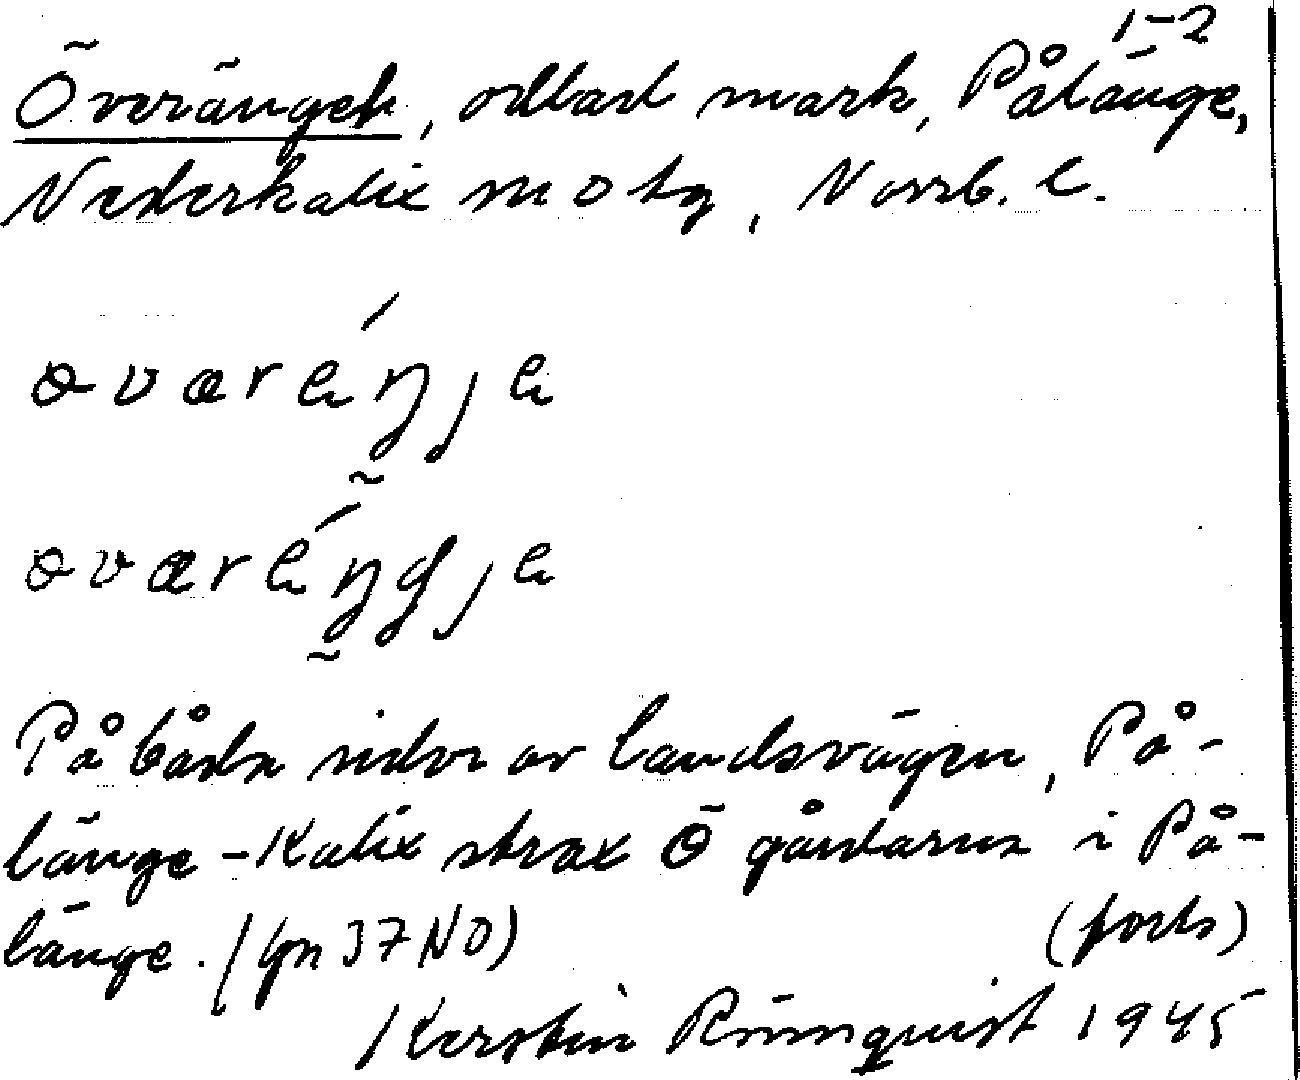 1-2
Överänget, odlad mark, Pålänge,
Nederkalix sn o tg, Norrb. l.
øværéŋje
øværéŋgje
På båda sidor av landsvägen, På-
länge - Kalix strax Ö gårdarna i På-
länge. (Gn 37 NO) (forts)
Kerstin Rönnquist 1945